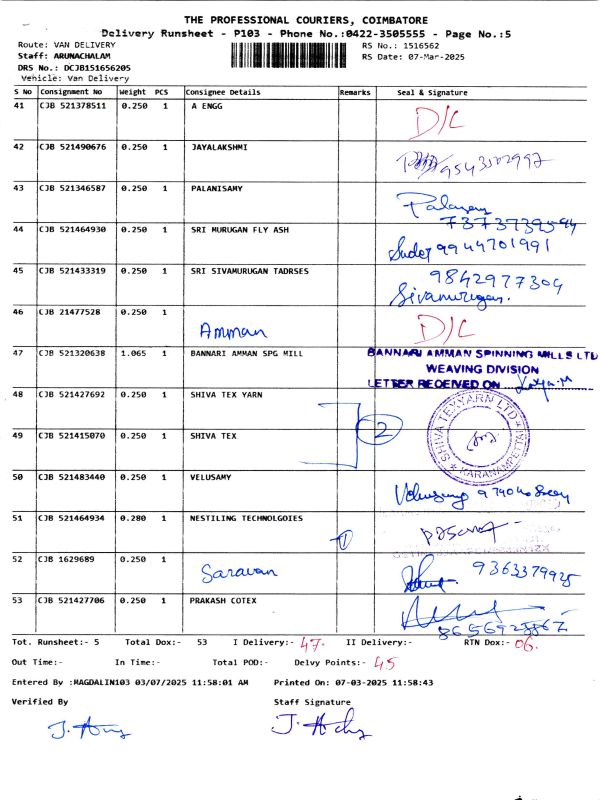 THE PROFESSIONAL COURIERS, COIMBATORE
Delivery Runsheet - P103 - Phone No.:0422-3505555 - Page No.:5
Route: VAN DELIVERY RS No.: 1516562
Staff: ARUNACHALAM RS Date: 07-Mar-2025
DRS No.: DCJB151656205
Vehicle: Van Delivery
S No Consignment No Weight PCS Consignee Details Remarks Seal & Signature
41 CJB 521378511 0.250 1 A ENGG D/C
42 CJB 521490676 0.250 1 JAYALAKSHMI
43 CJB 521346587 0.250 1 PALANISAMY
44 CJB 521464930 0.250 1 SRI MURUGAN FLY ASH 9944701991
45 CJB 521433319 0.250 1 SRI SIVAMURUGAN TADRSES 9842977304
Sivamurugan.
46 CJB 21477528 0.250 1 Amman D/C
47 CJB 521320638 1.065 1 BANNARI AMMAN SPG MILL BANNARI AMMAN SPINNING MILLS LTD
WEAVING DIVISION
LETTER RECEIVED ON
48 CJB 521427692 0.250 1 SHIVA TEX YARN
2
SHIVA TEXYARN LTD
49 CJB 521415070 0.250 1 SHIVA TEX
50 CJB 521483440 0.250 1 VELUSAMY
51 CJB 521464934 0.280 1 NESTILING TECHNOLGOIES 1
52 CJB 1629689 0.250 1 Saravan 9363379925
53 CJB 521427706 0.250 1 PRAKASH COTEX
Tot. Runsheet:- 5 Total Dox:- 53 I Delivery:- 47. II Delivery:- RTN Dox:- 06.
Out Time:- In Time:- Total POD:- Delvy Points:- 45
Entered By :MAGDALIN103 03/07/2025 11:58:01 AM Printed On: 07-03-2025 11:58:43
Verified By Staff Signature